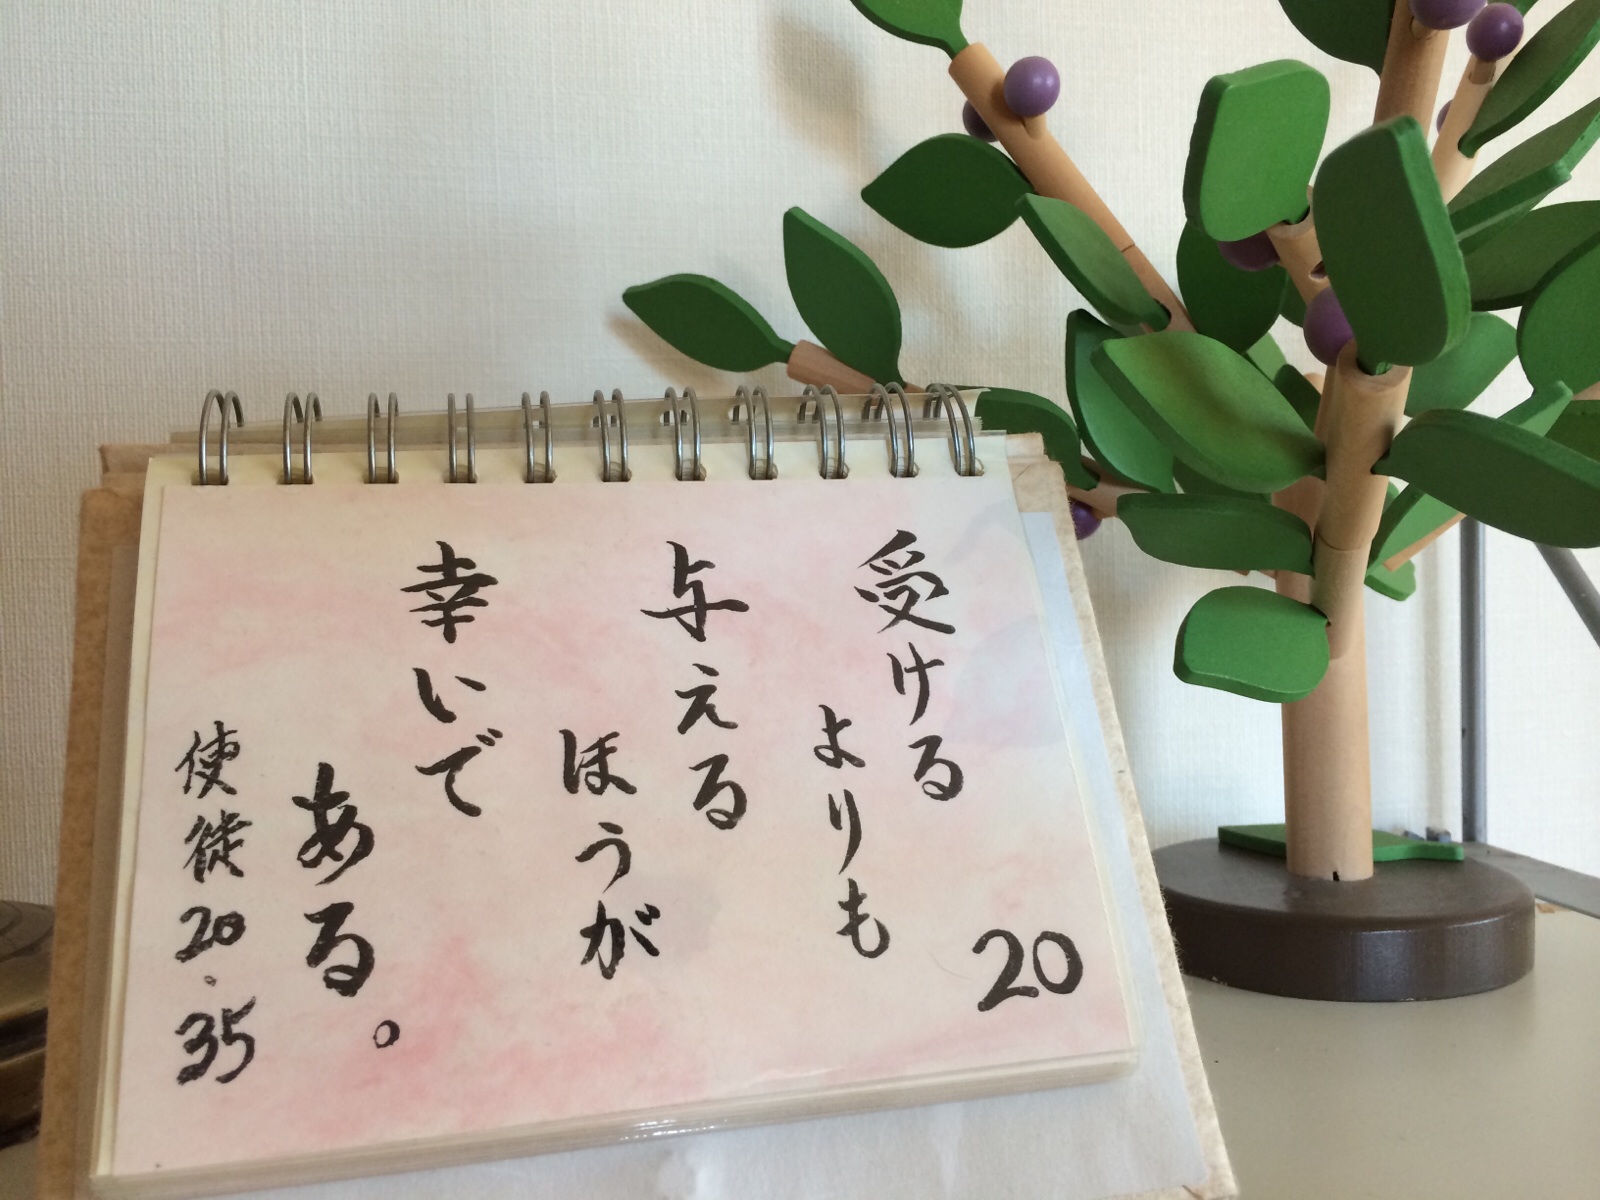 20
受ける
よりも
与える
ほうが
幸いで
ある。
使徒20.35